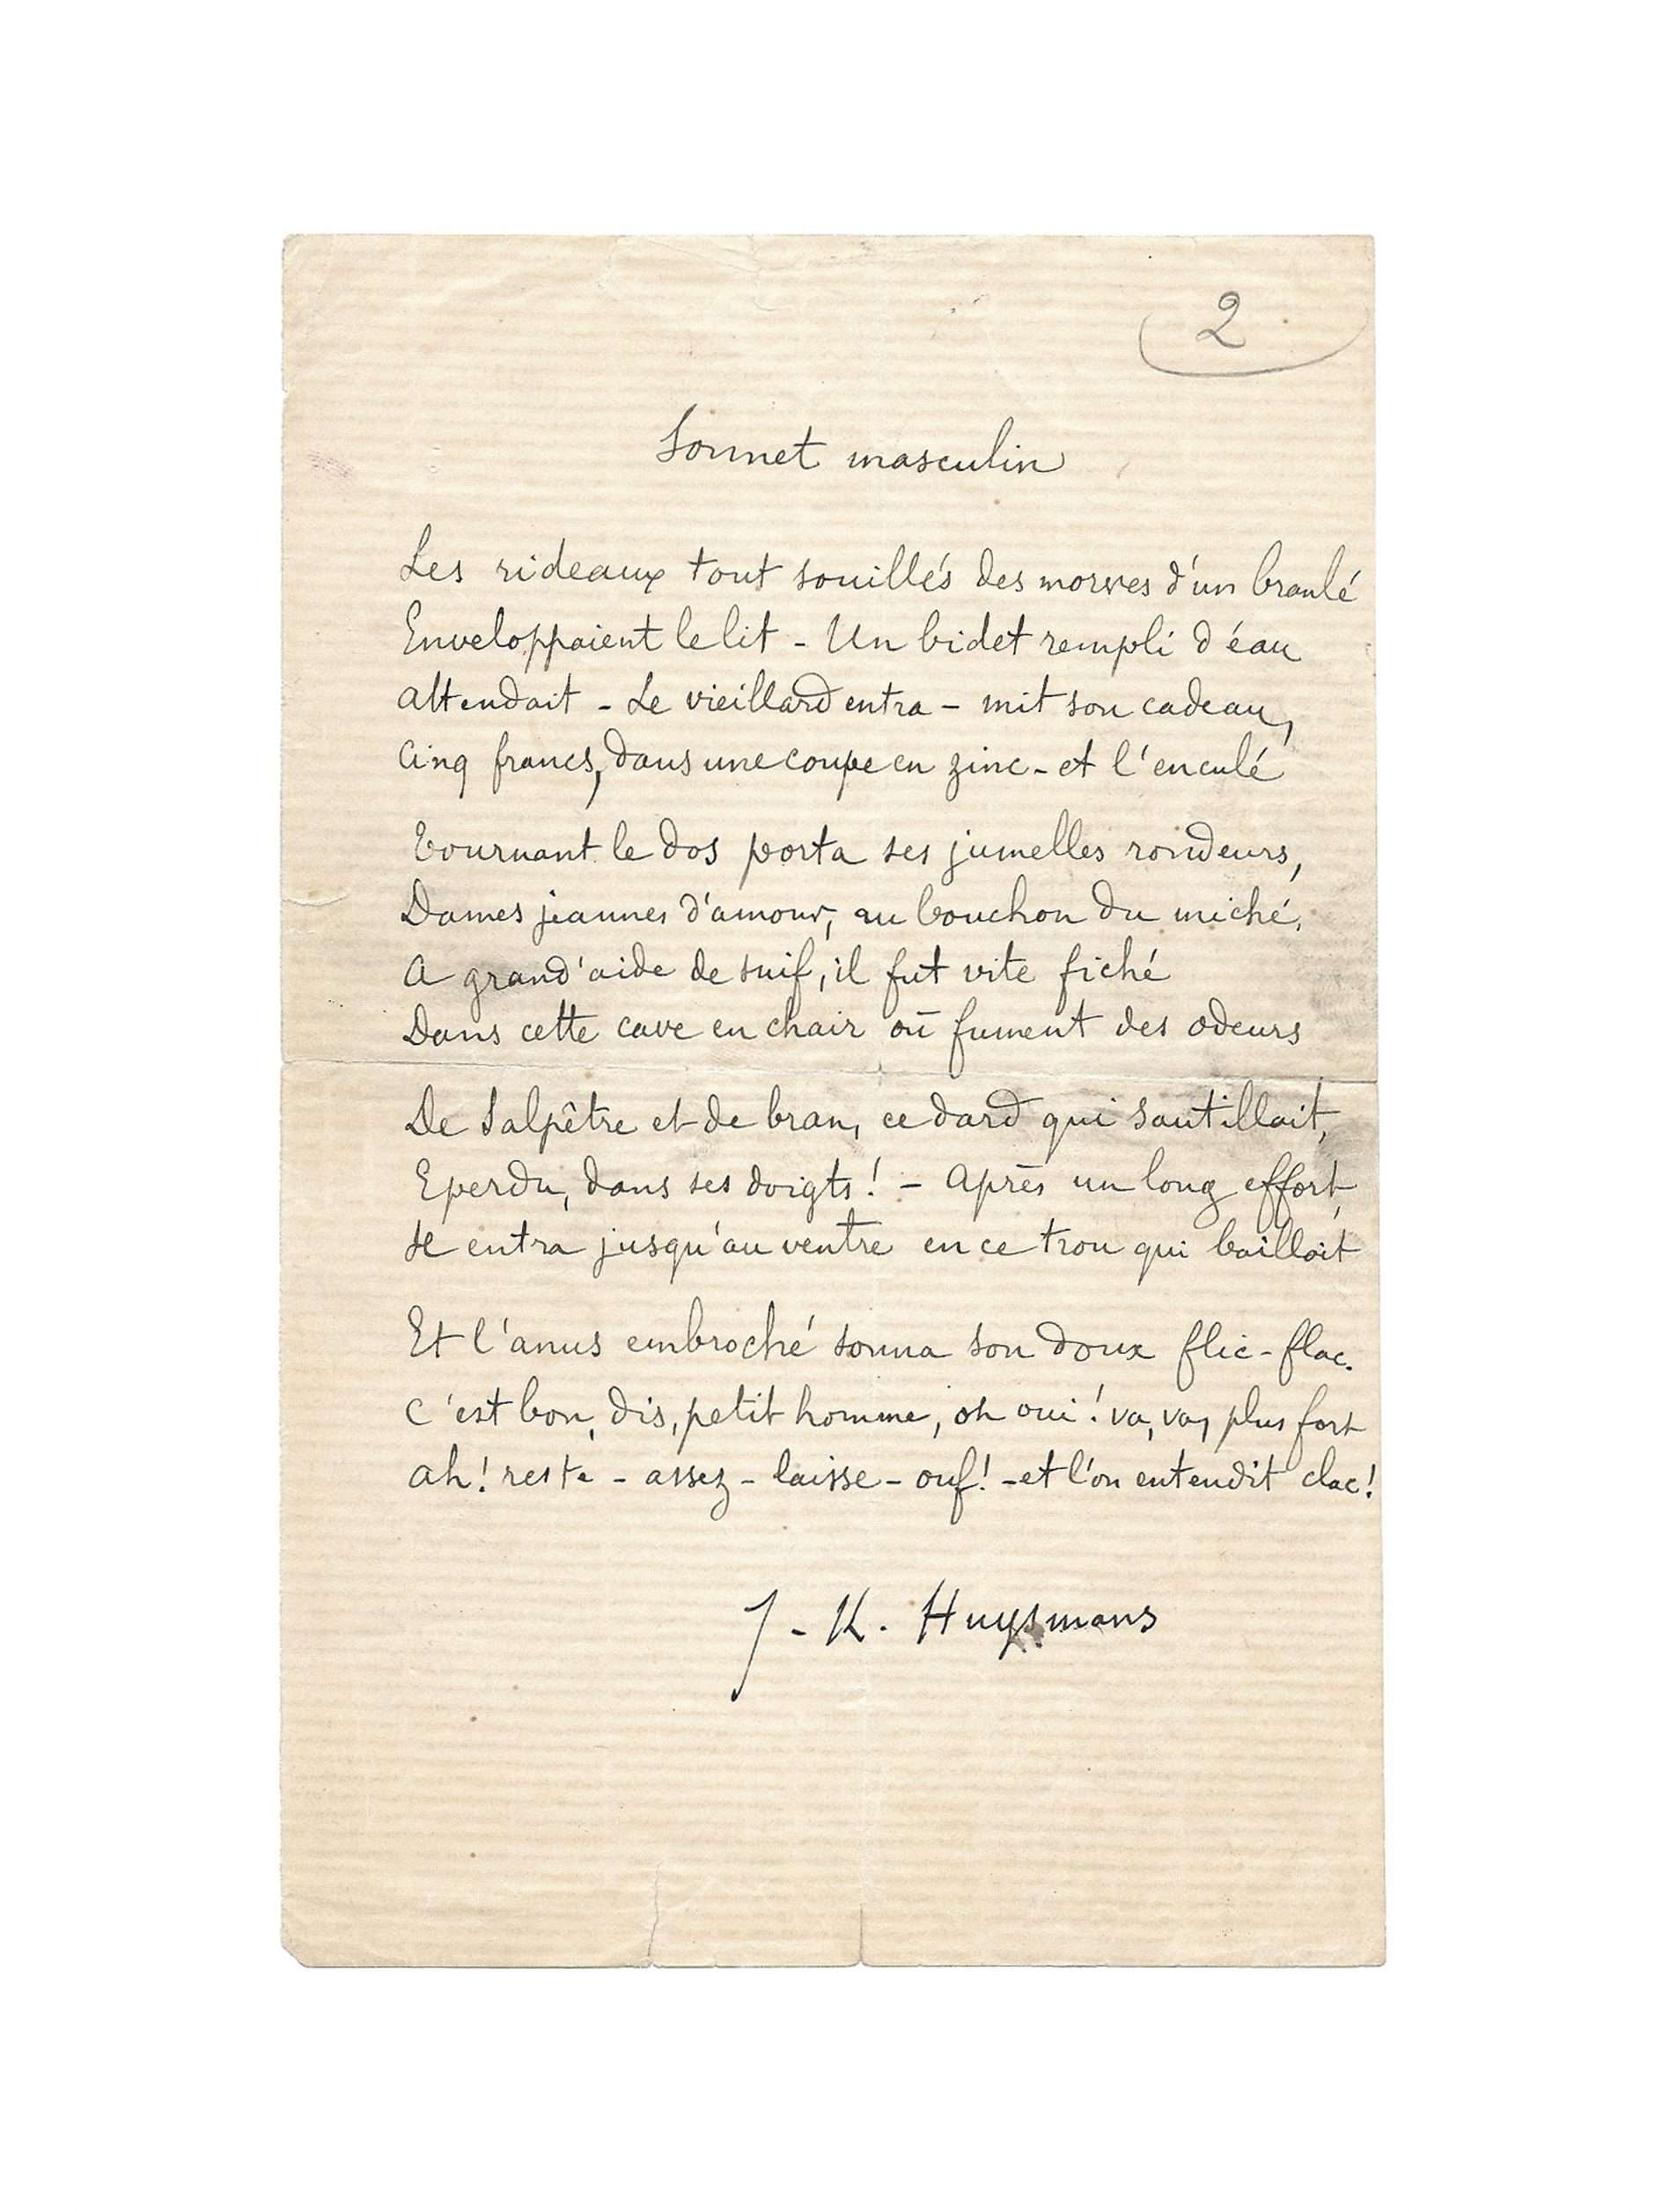 2
Sonnet masculin
Les rideaux tout souillés des morves d'un branlé
Enveloppaient le lit - Un bidet rempli d'éau
attendait - Le vieillard entra - mit son cadeau,
Cinq francs, dans une coupe en zinc - et l'enculé
Tournant le dos porta ses jumelles rondeurs,
Dames jeannes d'amour, au bouchon du miché.
A grand'aide de suif, il fut vite fiché
Dans cette cave en chair où fument des odeurs
De Salpêtre et de bran, ce dard qui sautillait,
Eperdu, dans ses doigts! - Après un long effort,
Il entra jusqu'au ventre en ce trou qui baillait
Et l'anus embroché sonna son doux flic-flac.
C'est bon, dis, petit homme, oh oui! va, va, plus fort
ah! reste - assez - laisse - ouf! - et l'on entendit clac!
J-K. Huysmans